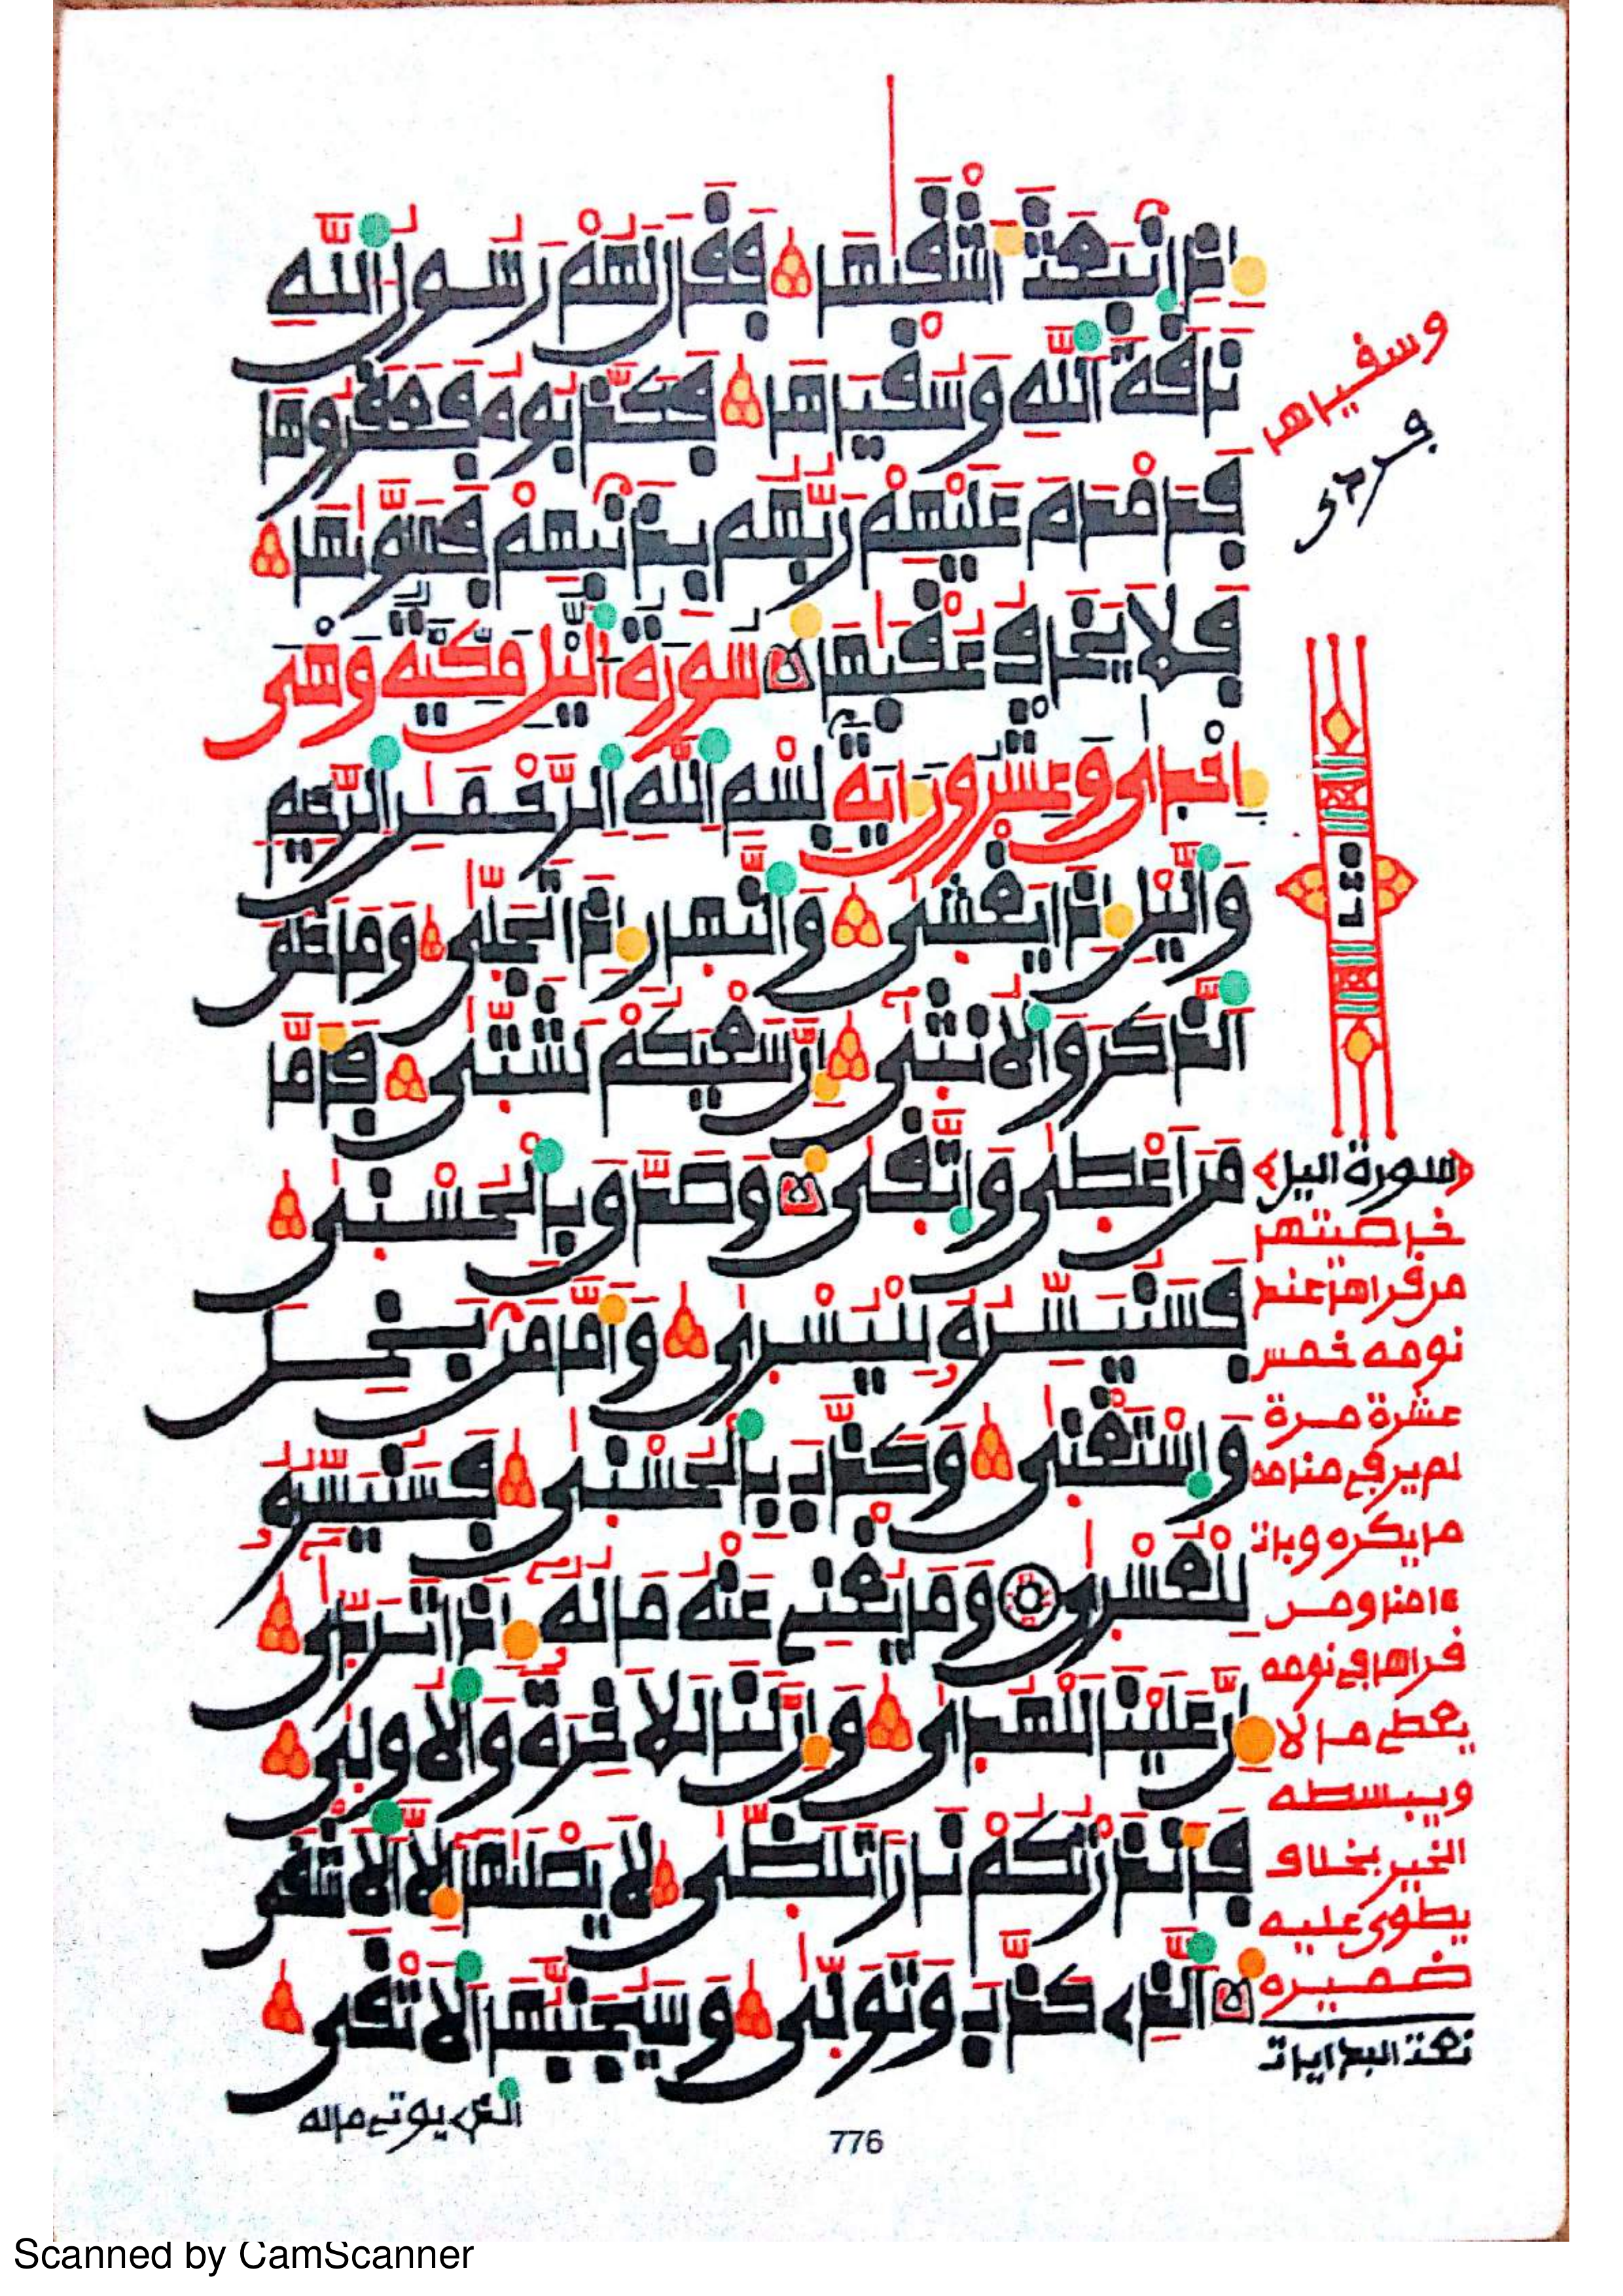 إِذِ اِنۢبَعَثَ أَشْقَىٰهَا فَقَالَ لَهُمْ رَسُولُ اُللَّهِ
نَاقَةَ اَللَّهِ وَسُقْيَٰهَا فَكَذَّبُوهُ فَعَقَرُوهَا
فَدَمْدَمَ عَلَيْهِمْ رَبُّهُم بِذَنۢبِهِمْ فَسَوَّىٰهَا
فَلَا يَخَافُ عُقْبَٰهَا سُورَةُ اُلَّيْلِ مَكِّيَّةٌ وَهْىَ
إِحْدَى وَعِشْرُونَ ءَايَةً بِسْمِ اِللَّهِ اِلرَّحْمَٰنِ اِلرَّحِيمِ
وَاَلَّيْلِ إِذَا يَغْشَىٰ وَاَلنَّهَارِ إِذَا تَجَلَّىٰ وَمَا خَلَقَ
اَلذَّكَرَ وَاَلُانثَىٰ إِنَّ سَعْيَكُمْ لَشَتَّىٰ فَأَمَّا
مَنَ اَعْطَىٰ وَاَتَّقَىٰ وَصَدَّقَ بِالْحُسْنَىٰ
فَسَنُيَسِّرُهُ لِلْيُسْرَىٰ وَأَمَّا مَنۢ بَخِلَ
وَاَسْتَغْنَىٰ وَكَذَّبَ بِالْحُسْنَىٰ فَسَنُيَسِّرُهُ
لِلْعُسْرَىٰ وَمَا يُغْنِى عَنْهُ مَالُهُ إِذَا تَرَدَّىٰ
إِنَّ عَلَيْنَا لَلْهُدَىٰ وَإِنَّ لَنَا لَلَاخِرَةَ وَالُاولَىٰ
فَأَنذَرْتُكُمْ نَارًا تَلَظَّىٰ لَا يَصْلَىٰهَا إِلَّا اَلَاشْقَى
اَلَّذِى كَذَّبَ وَتَوَلَّىٰ وَسَيُجَنَّبُهَا اَلَاتْقَىٰ
الذى يوتى ماله
776
وسقياها
سورة اليل
خاصيتها
من قراها عند
نومه خمس
عشرة مرة
لم ير فى منامه
ما يكره وبات
ءامنا ومن
قراها فى نومه
يعطى مالا
ويبسطه
الخير بخلاف
يطوى عليه
ضميره
Scanned by CamScanner